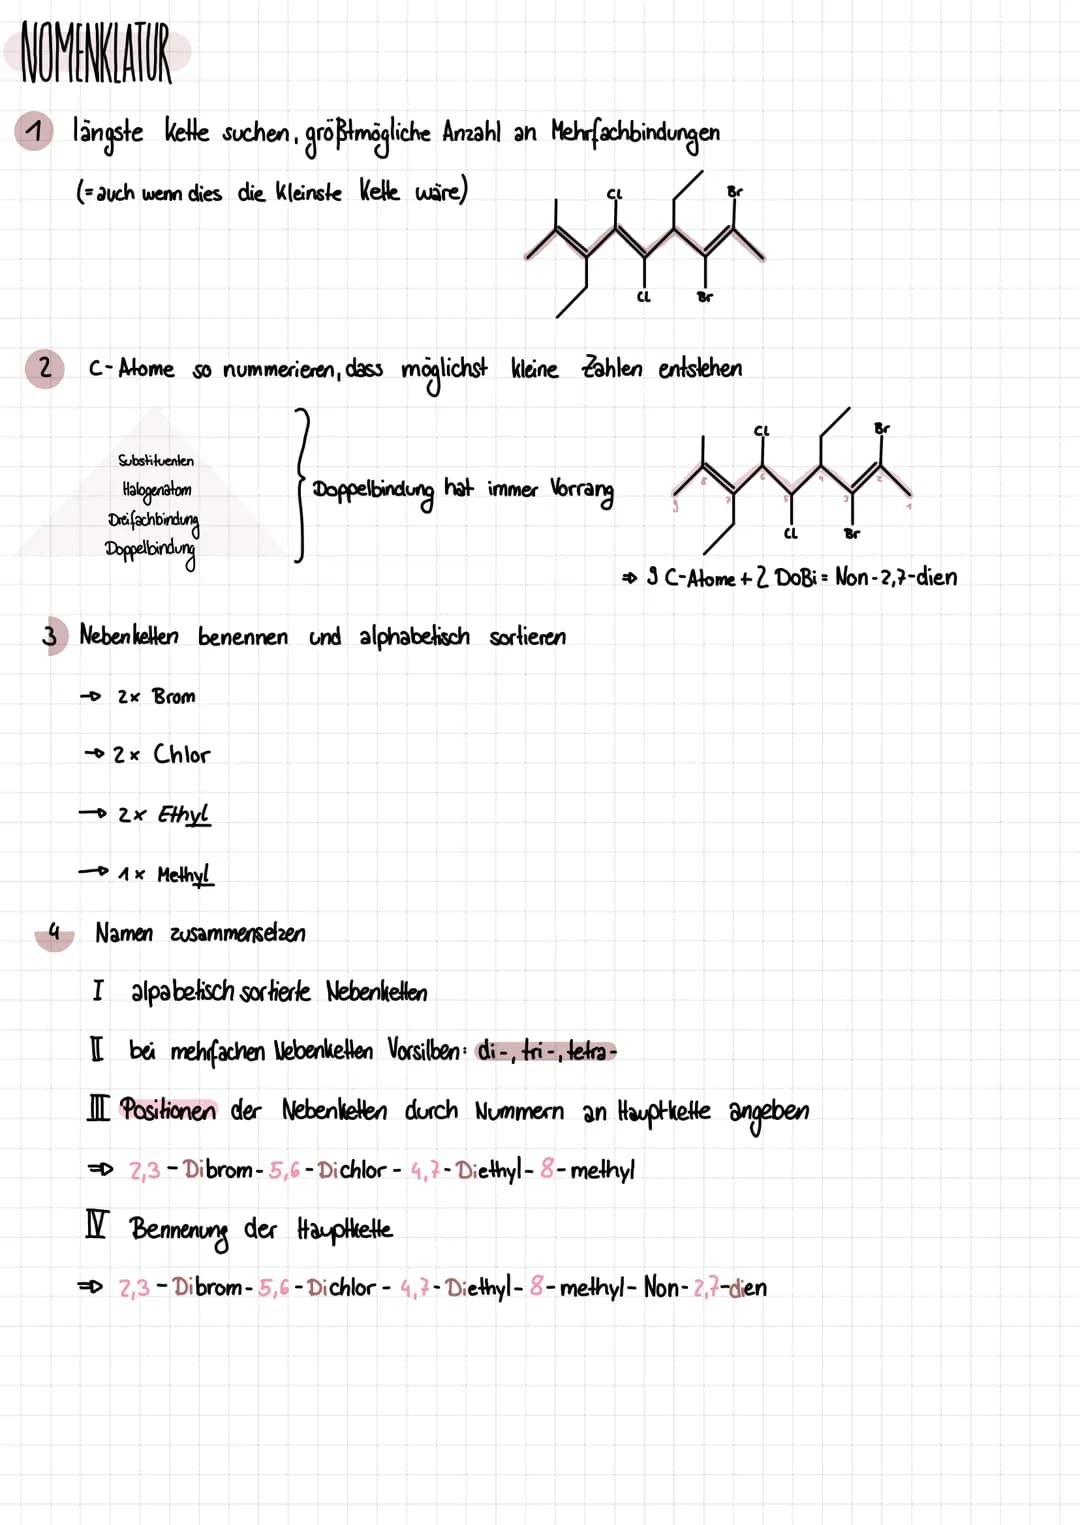 NOMENKLATUR
1 längste Kette suchen, größtmögliche Anzahl an Mehrfachbindungen
(= auch wenn dies die kleinste Kette wäre)
Cl
Br
Cl
Br
2 C-Atome so nummerieren, dass möglichst kleine Zahlen entstehen
Substituenten
Halogenatom
Dreifachbindung
Doppelbindung
Doppelbindung hat immer Vorrang
Cl
Br
9 8 7 6 5 4 3 2 1
Cl
Br
⇒ 9 C-Atome + 2 DoBi = Non-2,7-dien
3 Nebenketten benennen und alphabetisch sortieren
→ 2x Brom
→ 2x Chlor
→ 2x Ethyl
→ 1x Methyl
4 Namen zusammensetzen
I alpabetisch sortierte Nebenketten
II bei mehrfachen Nebenketten Vorsilben: di-, tri-, tetra-
III Positionen der Nebenketten durch Nummern an Hauptkette angeben
⇒ 2,3-Dibrom-5,6-Dichlor-4,7-Diethyl-8-methyl
IV Bennenung der Hauptkette
⇒ 2,3-Dibrom-5,6-Dichlor-4,7-Diethyl-8-methyl-Non-2,7-dien